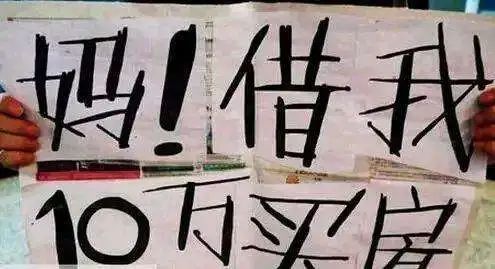 妈！借我
10万买房